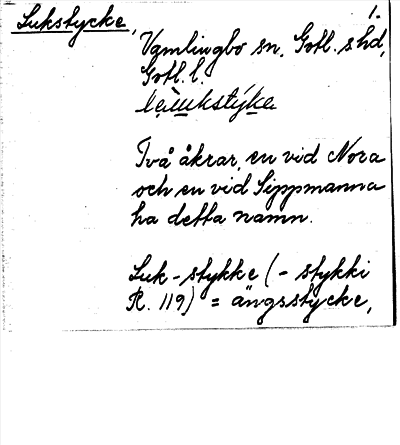 Lukstycke,
1.
Vamlingbo sn. Gotl. s hd,
Gotl. l.
Två åkrar, en vid Nora
och en vid Sippmanna
ha detta namn.
Luk-stykke (-stykki
R. 119) = ängsstycke,